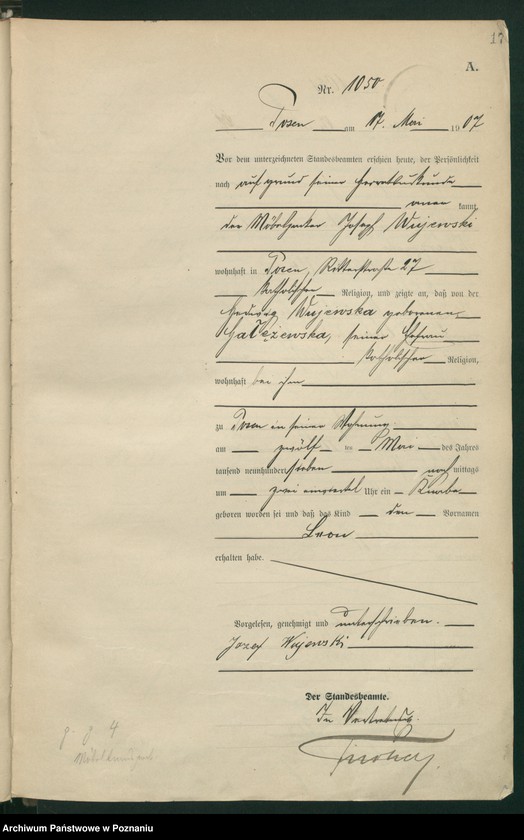 17
A.
Nr. 1050
Posen am 17. Mai 1907
Vor dem unterzeichneten Standesbeamten erschien heute, der Persönlichkeit
nach auf Grund seiner
kannt,
der Möbel Joseph Wujewski
wohnhaft in Posen, Ritterstraße 27
katholischer Religion, und zeigte an, daß von der
Hedwig Wujewska geborenen
seiner Ehefrau
katholischer Religion,
wohnhaft bei ihm
zu Posen in seiner Wohnung
am zwölften Mai des Jahres
tausend neunhundert sieben nach mittags
um zwei einviertel Uhr ein Knabe
geboren worden sei und daß das Kind den Vornamen
Leon
erhalten habe.
Vorgelesen, genehmigt und unterschrieben.
Jozef Wujewski
Der Standesbeamte.
In Vertretung.
Archiwum Państwowe w Poznaniu